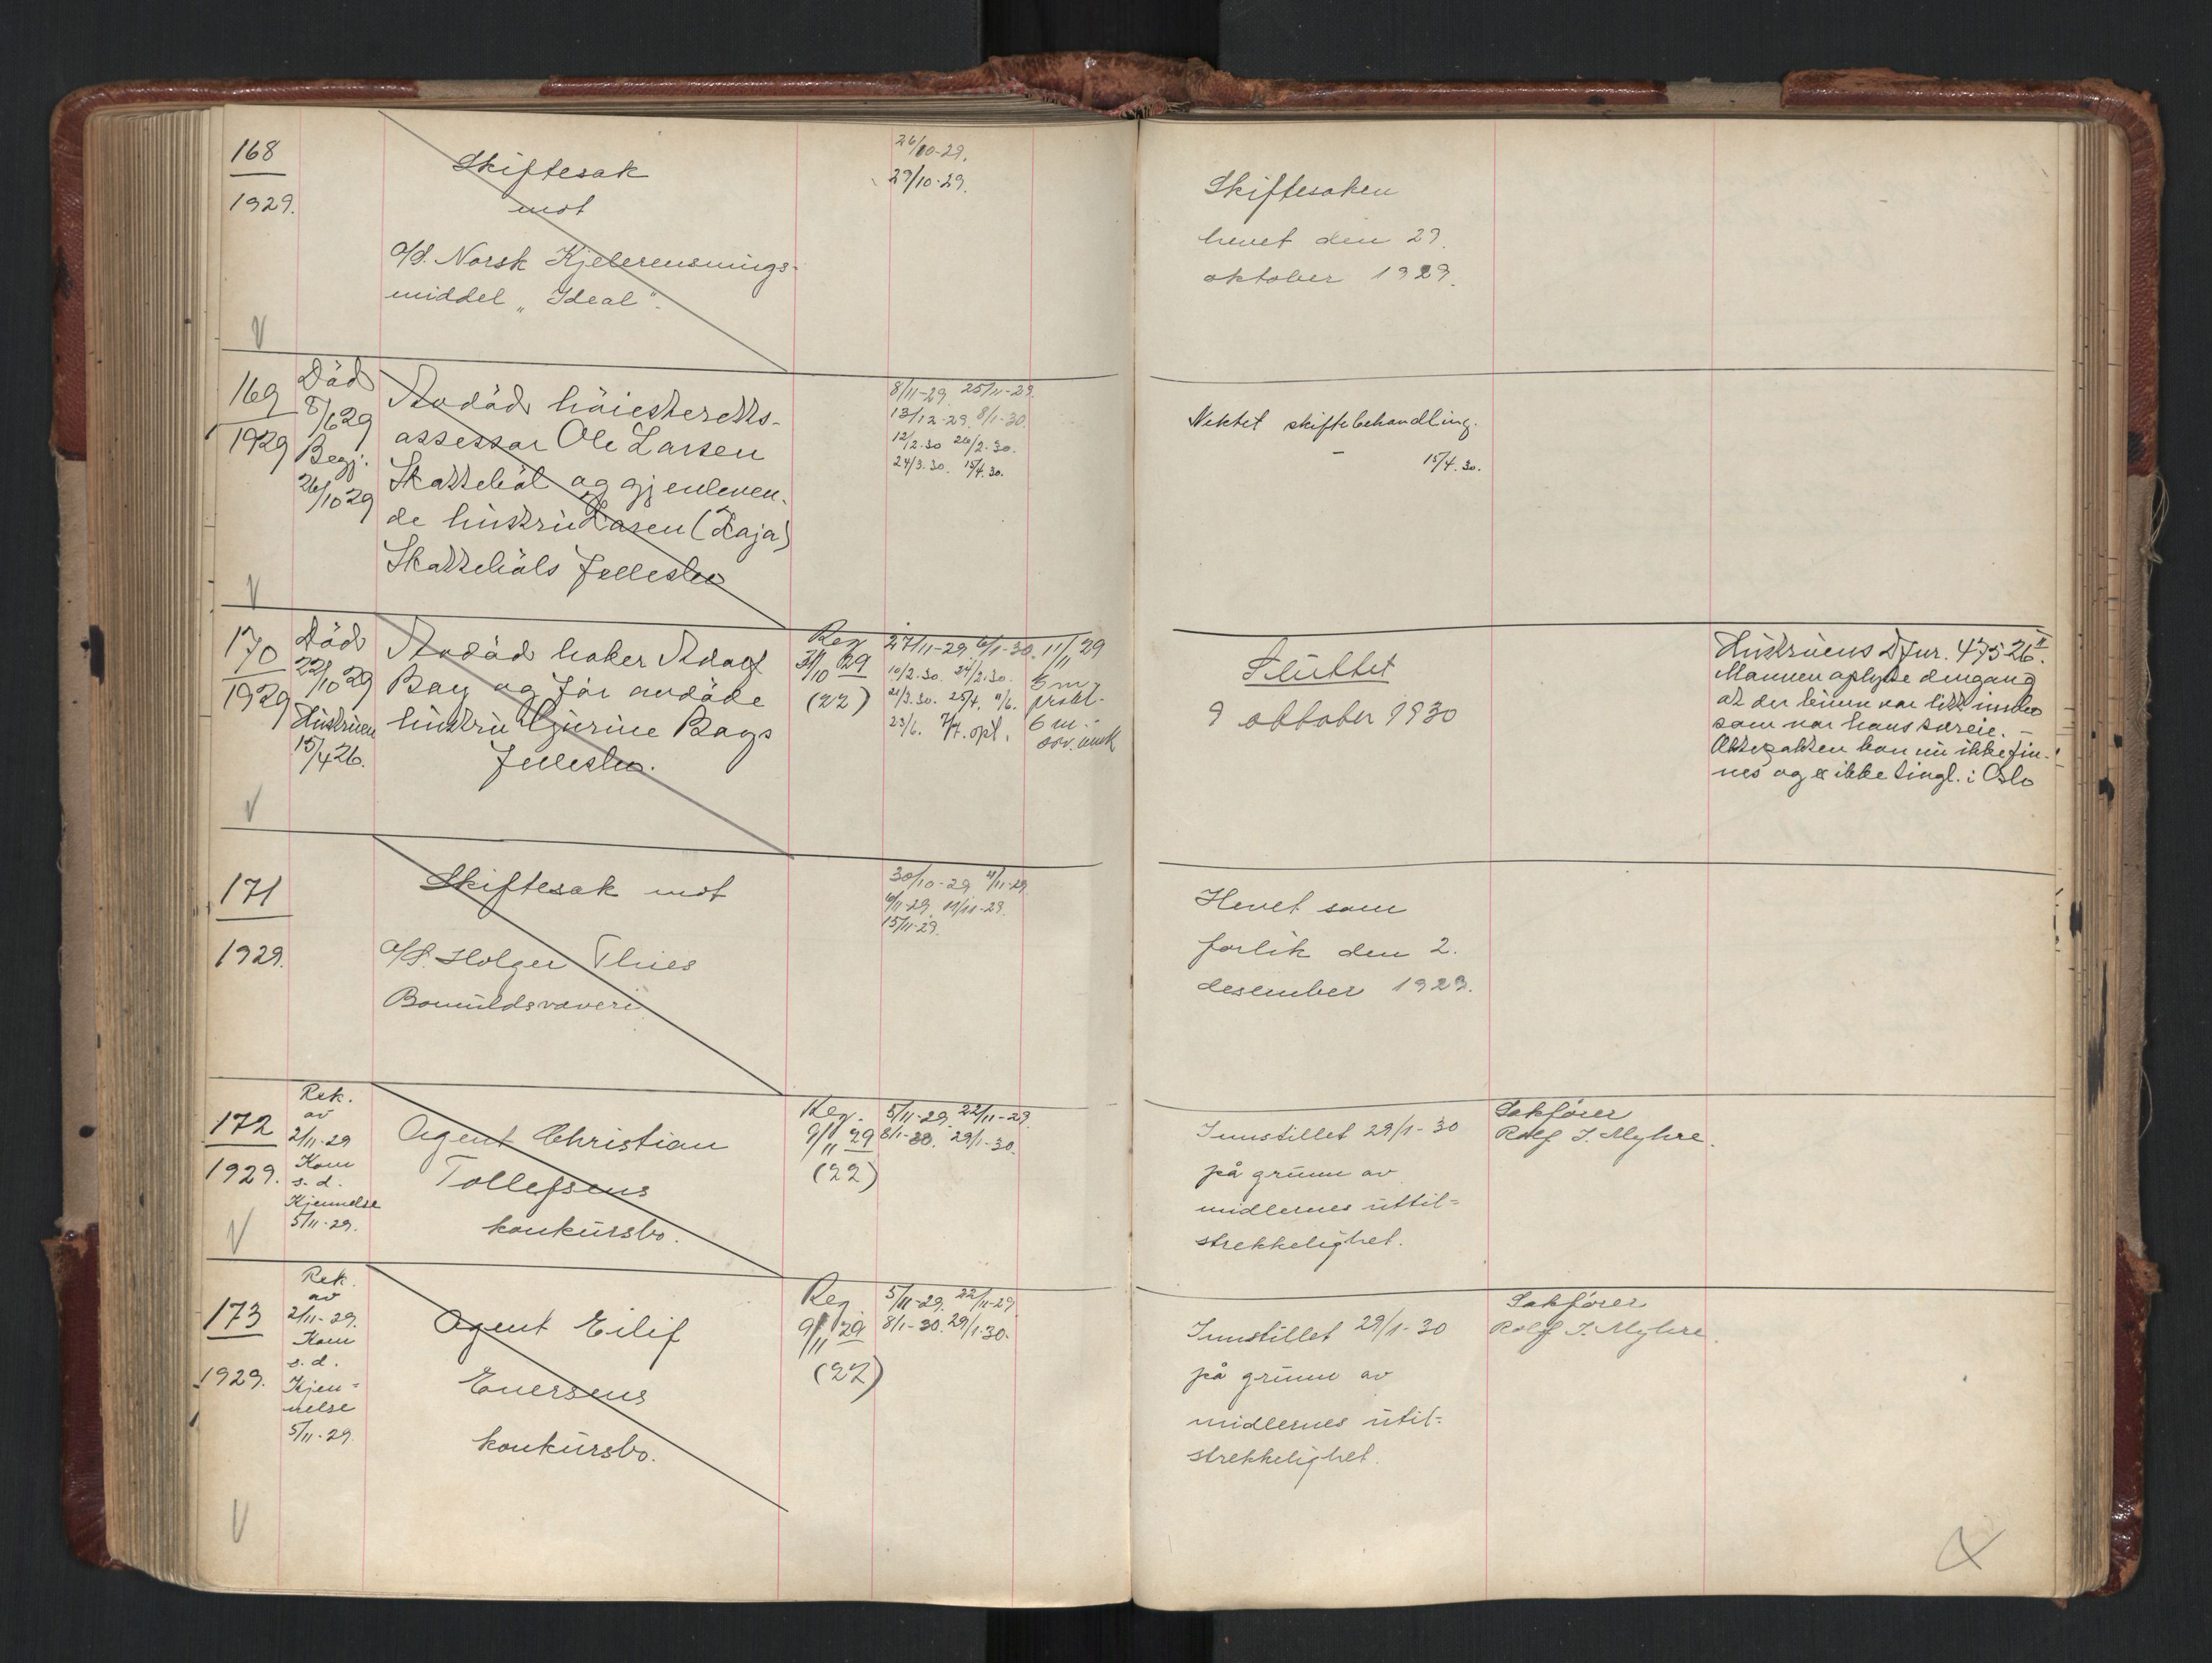 168
1929.
Skiftesak
mot
A/S. Norsk Kjelerensnings-
middel „Ideal".
26/10-29.
29/10-29.
Skiftesaken
hevet den 29.
oktober 1929.
169
1929
Död
8/6 29
Begj.
26/10 29
Avdöd höiesteretts-
assessor Ole Larsen
Skatteböl og gjenleven-
de hustru Kasen (Kaja)
Skatteböls fellesbo
8/11-29. 25/11-29.
13/12-29. 8/1-30.
12/2.30 26/2.30.
24/3.30. 15/4.30.
Nektet skiftebehandling.
15/4.30.
170
1929
Död
22/10 29
Hustruen
15/4 26.
Avdöd baker Adolf
Bay og för avdöde
hustru Gurine Bays
fellesbo.
Reg
31/10 29
(22)
27/11-29. 6/1-30.
10/2.30. 24/2.30.
21/3.30. 25/4. 11/6.
23/6. 7/7. opl.
11/11 29
6 m.
prokl.
6 m.
Sluttet
9 oktober 1930
Hustruens Djur. 475 26 II.
Mannen oplyste dengang
at der kunn var litt innbo
som var hans særeie. -
Ektepakten kan nu ikke fin-
nes og er ikke tingl. i Oslo
171
1929.
Skiftesak mot
A/S. Holger Thies
Bomuldsvæveri
30/10-29 4/11-29.
6/11-29. 11/11-29.
15/11-29.
Hevet som
forlik den 2.
desember 1929.
172
1929.
Rek.
av
2/11-29
Kom
s. d.
Kjennelse
5/11-29.
Agent Christian
Tollefsens
konkursbo.
Reg.
9/11 29
(22)
5/11-29. 22/11-29.
8/1-30. 29/1-30.
Innstillet 29/1-30
på grunn av
midlernes uttil-
strekkelighet.
Sakfører
Rolf J. Myhre.
173
1929.
Rek.
av
2/11-29.
Kom
s. d.
Kjen-
nelse
5/11-29.
Agent Eilif
Eversens
konkursbo.
Reg.
9/11 29
(22)
5/11-29. 22/11-29
8/1-30. 29/1-30.
Innstillet 29/1-30
på grunn av
midlernes util-
strekkelighet.
Sakfører
Rolf J. Myhre.